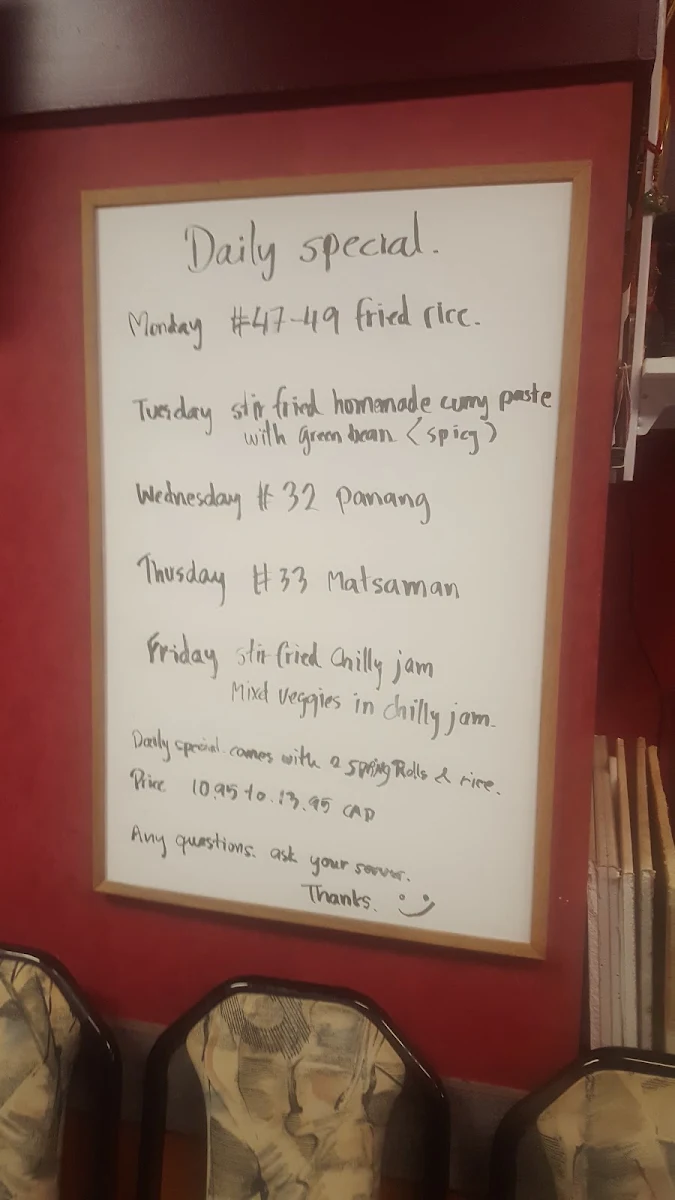 Daily special.
Monday #47-49 fried rice.
Tuesday stir fried homemade curry paste
with green bean (spicy)
Wednesday #32 Panang
Thusday #33 Matsaman
Friday stir fried Chilly jam
Mixd veggies in chilly jam.
Daily special comes with 2 Spring Rolls & rice.
Price 10.95 to 13.95 CAD
Any questions. ask your server.
Thanks.